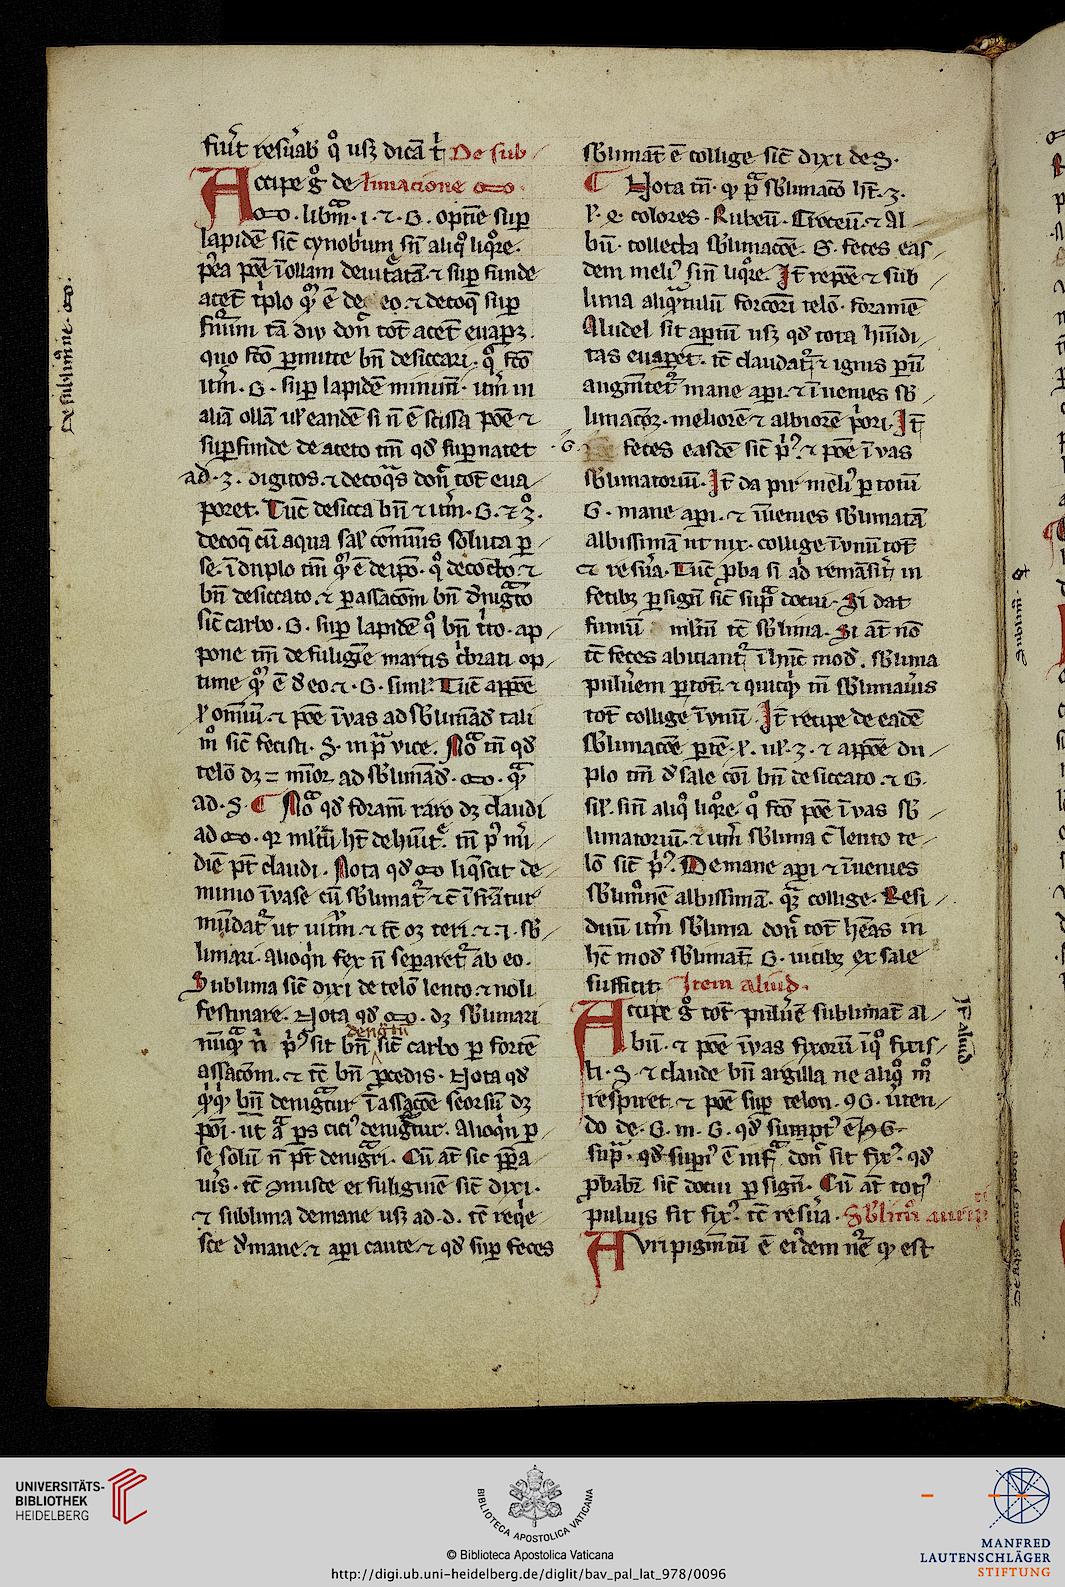 fiūt reſūab qͦ uſꝫ dicā t̄ De sub
Accipe gͦ de limacione o-o.
o-o. librͣm. i. ⁊. G. optīe suꝑ
lapidē sic̄ cynobrium sn̄ aliqͦ liqͦre.
p̄ea poē ī ollam deuitͣtatā ⁊ suꝑ funde
acet̄ t̄plo qͥ ē de eo ⁊ decoq̄ suꝑ
tā diu don̄ tot̄ acet̄ euapꝫ.
quo fc̄o ꝑmitte bn̄ desiccari. qͦ fc̄o
it̄m. G. suꝑ lapidē minim̄. it̄m in
aliā ollā ul̓ eandē si n̄ ē scissa poē ⁊
suꝑfunde de aceto tm̄ qd̄ suꝑnatet
ad. 3. digitos. ⁊ decoqͣs don̄ tot̄ eua
poret. Tūc desicca bn̄ ⁊ it̄m. G. ⁊ 3.
decoq̄ cū aqua sal̓ cōmunis soluta ꝑ
se. ī duplo tm̄ qͥ ē de ip̄o. qͦ decocto ⁊
bn̄ desiccato. ⁊ ꝑ assacōm bn̄ dn̄igͣto
sic̄ carbo. G. suꝑ lapidē qͦ bn̄ tͥto. ap
pone tm̄ de fuligīe martis cͥbrati op
time qͥ ē d̄ eo ⁊. G. simˡ. Tūc appōe
ꝉ omīū. ⁊ poē ī vas ad sb̓limād̄ tali
m̊ sic̄ fecisti. S. in pͣ vice. Noͣ tn̄ qd̄
telō dꝫ = mīor ad sb̓limād̄. o-o. qͣ
ad. S. ¶ Noͣ qd̄ foram̄ raro dꝫ claudi
ad o-o. qr ml̓tū ht̄ de hūit. tn̄ pͥ mͥ
diē pt̄ claudi. Nota qd̄ o-o liqͥscit de
minio ī vase cū sb̓limatͬ ⁊ c̄ īfrātur
mūdatͬ ut uitͬm. ⁊ tc̄ oꝫ teri. ⁊. sb̓
limari. alioqͥn fex n̄ separetͬ ab eo.
Sublima sic̄ dixi de telō lento. ⁊ noli
festinare. Nota qd̄ o-o. dꝫ sb̓limari
denigͣtū
nūqͣ n̄ pͥꝰ sit bn̄ sic̄ carbo ꝑ fortē
assacōm. ⁊ tc̄ bn̄ ꝓcedis. Nota qd̄
qͥqͥ bn̄ denigͣtur ī assacōe seorsū dꝫ
poī. ut aͣ ps citiꝰ denigͣtur. Alioqͥn ꝑ
se solū n̄ pt̄ denigͣri. Cū at̄ sic ꝑpͣa
uīs. tc̄ ꝯmisce et fuligīnē sic̄ dixi.
⁊ sublima de mane uſꝫ ad. d. tc̄ reqͥe
sce d̄ mane. ⁊ api caute ⁊ qd̄ suꝑ feces
sb̓limat̄ ē collige sic̄ dixi de S.
¶ Nota tn̄. qͥ pͣ sb̓limacō ht̄. 3.
ꝉ. e. colores. Rubeū. Croceū. ⁊ al
bū. collecta sb̓limacōe. G. feces eas
dem meliꝰ sin̄ liqͦre. It̄ repōe ⁊ sub
lima aliqͣntulū forcōri telō. foramē
Aludel sit aptū uſꝫ qd̄ tota hūidi
tas euapet. tc̄ claudatͬ ⁊ ignis pū
augm̄tetͬ mane api. ⁊ īuenies sb̓
limacōꝫ. meliorē ⁊ albiorē pͥori. It̄
G. feces easdē sic̄ pͥꝰ. ⁊ poē ī vas
sb̓limatoriū. It̄ da pir meliꝰ ꝑ totū
G. mane api. ⁊ īuenies sb̓limatā
albissimā ut nix. collige ī vnū tot̄
⁊ resͬua. Tūc ꝓba si ad̓ remāsit in
fecibꝫ ꝑ sign̄ sic̄ supͣ docui. Si dat
fumū ml̓tū tc̄ sb̓lima. Si at̄ nō
tc̄ feces abiciantͬ ī hūc mod̄. sb̓lima
puluēem ꝑ tot̄. ⁊ quicqͥ tn̄ sb̓limauīs
tot̄ collige ī vnū. It̄ recipe de eadē
sb̓limacōe ꝑtē. ꝉ. ul̓. 3. ⁊ appōe du
plo tm̄ d̄ sale cōi bn̄ desiccato. ⁊ G.
sil̓. sin̄ aliqͦ liqͦre. qͦ fc̄o poē ī vas sb̓
limatoriū. ⁊ it̄m sb̓lima c̄ lento te
lō sic̄ pͥꝰ. De mane api ⁊ īuenies
sb̓limōnē albissimā. qͣ collige. Resi
duū it̄m sb̓lima don̄ tot̄ hēas in
hc̄ mod̄ sb̓limat̄. G. uicibꝫ ex sale
sufficit. Item aliud.
Accipe gͦ tot̄ puluē sublimat̄ al
bū. ⁊ poē ī vas fixoriū ī qͦ fixis
ti. S. ⁊ claude bn̄ argilla ne aliqͦ m̊
respiret. ⁊ poē suꝑ telon. 96. ūten
do de. G. in. G. qd̄ sumptͥ ē 96
supͣ. qd̄ supiꝰ ē infͣ don̄ sit fixꝰ. qd̄
ꝓbabͬ sic̄ docui ꝑ sign̄. Cū at̄ totꝰ
puluis sit fixꝰ. tc̄ resͬua. Sb̓limͦ auripi
Auripigmtū ē eiꝰdem nē̄ qͥ est
De sublimōne. o-o.
Sublim̄.
It̄ aliud
UNIVERSITÄTS-
BIBLIOTHEK
HEIDELBERG
BIBLIOTHECA APOSTOLICA VATICANA
© Biblioteca Apostolica Vaticana
http://digi.ub.uni-heidelberg.de/diglit/bav_pal_lat_978/0096
MANFRED
LAUTENSCHLÄGER
STIFTUNG